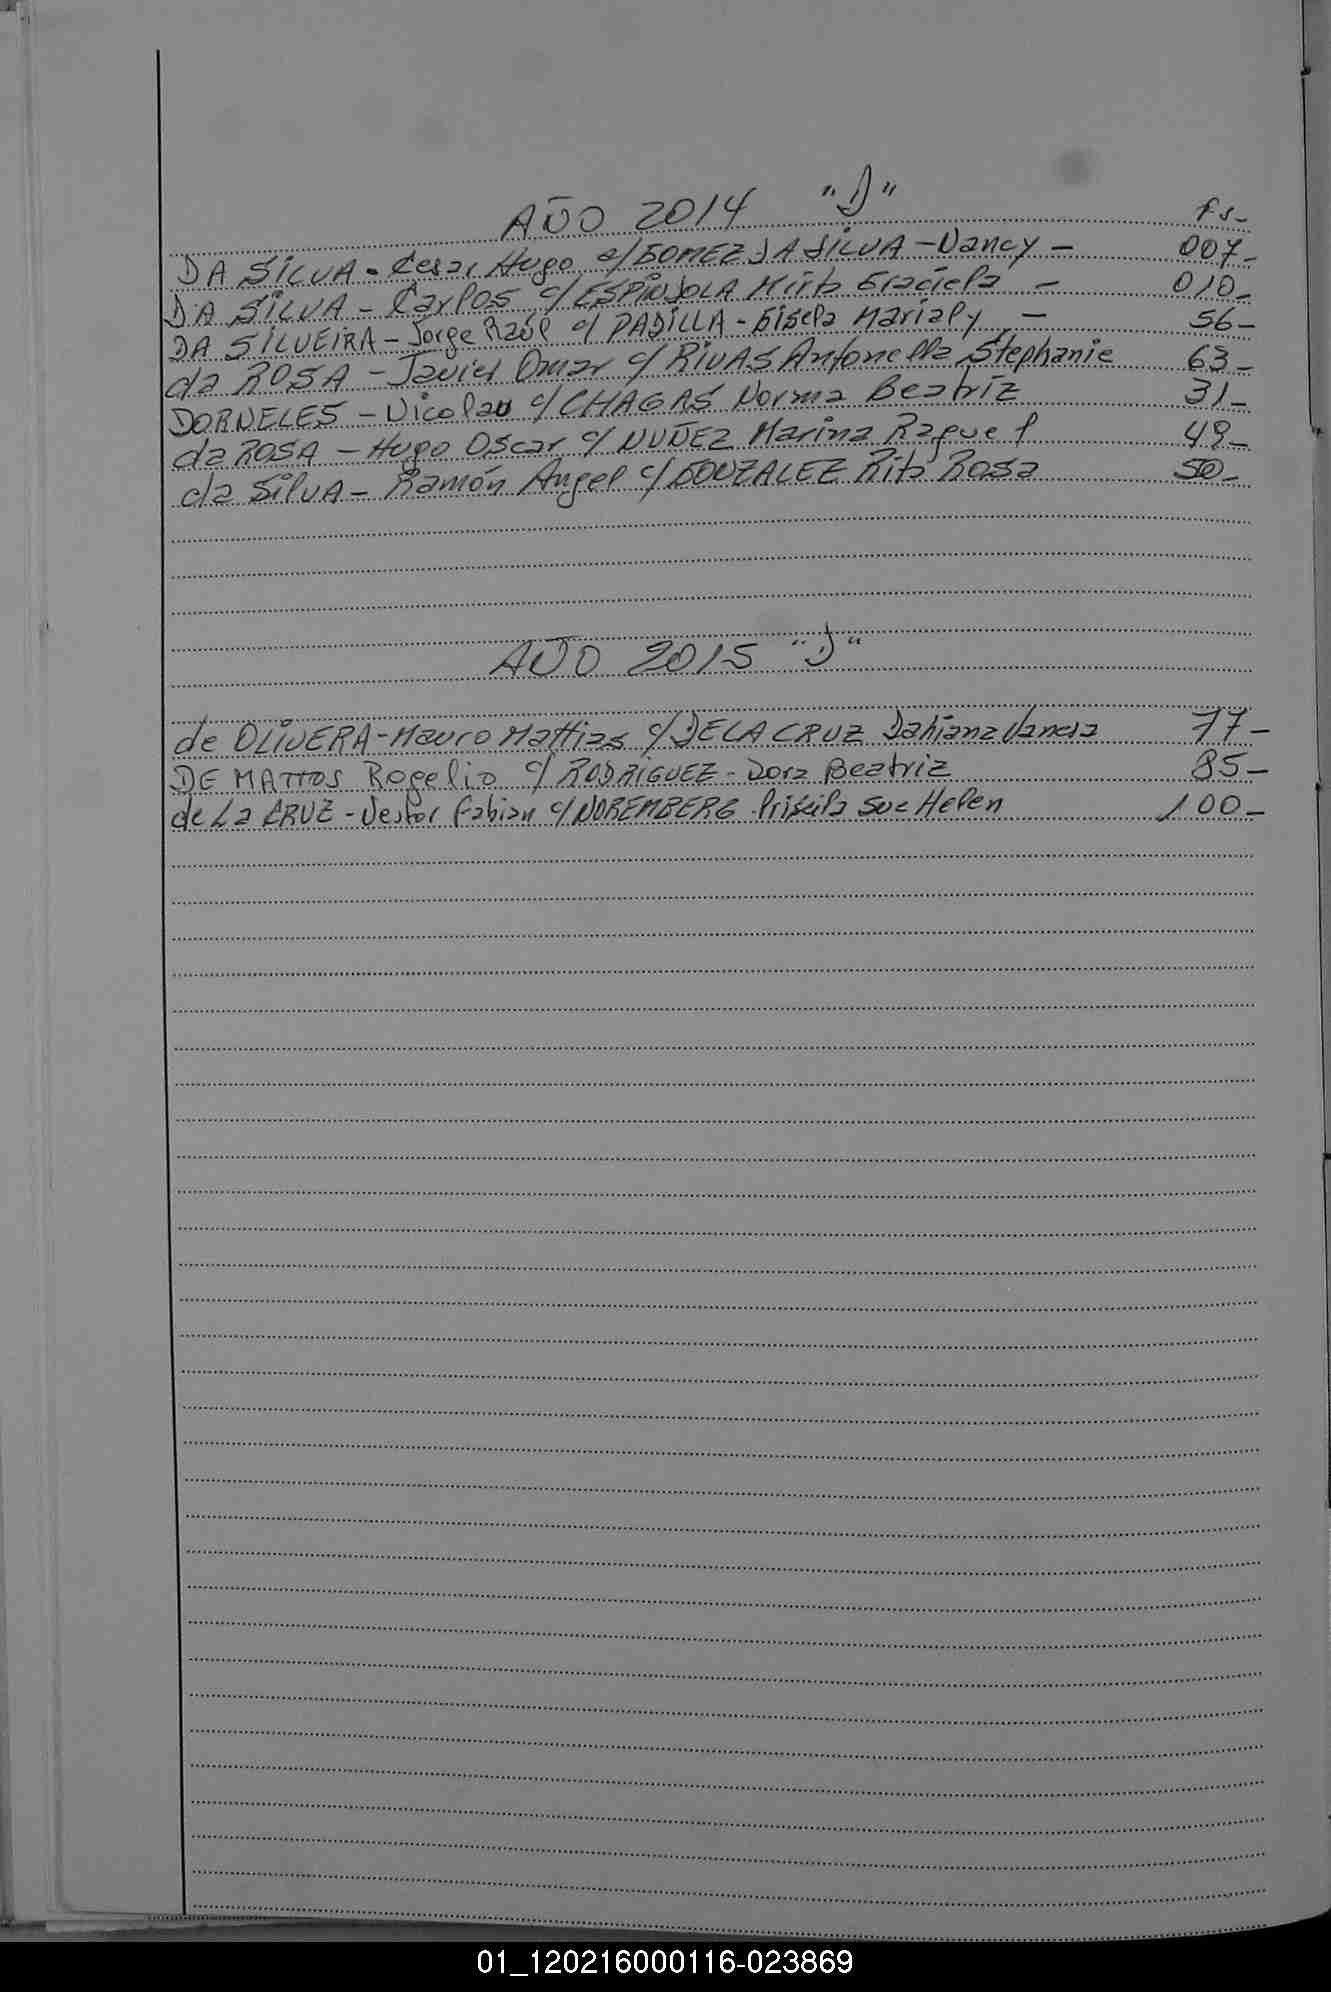 AÑO 2014 "D" fs-
DA SILVA - Cesar Hugo c/ GOMEZ DA SILVA - Nancy - 007-
DA SILVA - Carlos c/ ESPINDOLA Mirta Graciela - 010-
DA SILVEIRA - Jorge Raúl c/ PADILLA - Gisela Mariely - 56-
da ROSA - Javier Omar c/ RIVAS Antonella Stephanie 63-
DORNELES - Nicolau c/ CHAGAS Norma Beatríz 31-
da ROSA - Hugo Oscar c/ NUÑEZ Marina Raquel 49-
da SilVA - Ramón Angel c/ GONZALEZ Rita Rosa 50-
AÑO 2015 "D"
de OLIVERA - Mauro Mattias c/ DE LA CRUZ Dahiana Vanesa 77-
DE MATTOS Rogelio c/ RODRIGUEZ - Dora Beatriz 85-
de La CRUZ - Nestor Fabian c/ NOREMBERG Prisila Sue Helen 100-
01_120216000116-023869